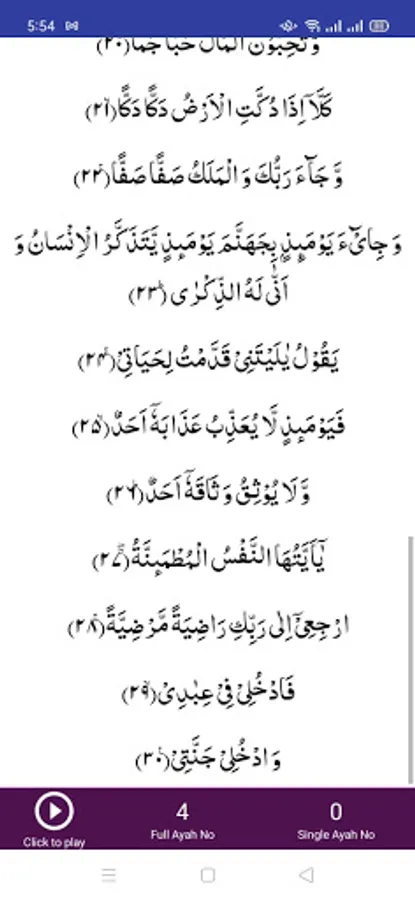 5:54
وَّتُحِبُّوْنَ الْمَالَ حُبًّا جَمًّا(۲۰)
كَلَّاۤ اِذَا دُكَّتِ الْاَرْضُ دَكًّا دَكًّا(۲۱)
وَّ جَآءَ رَبُّكَ وَ الْمَلَكُ صَفًّا صَفًّا(۲۲)
وَ جِایْٓءَ یَوْمَىٕذٍۭ بِجَهَنَّمَ یَوْمَىٕذٍ یَّتَذَكَّرُ الْاِنْسَانُ وَ
اَنّٰى لَهُ الذِّكْرٰى(۲۳)
یَقُوْلُ یٰلَیْتَنِیْ قَدَّمْتُ لِحَیَاتِیْ(۲۴)
فَیَوْمَىٕذٍ لَّا یُعَذِّبُ عَذَابَهٗۤ اَحَدٌ(۲۵)
وَّ لَا یُوْثِقُ وَ ثَاقَهٗۤ اَحَدٌ(۲۶)
یٰۤاَیَّتُهَا النَّفْسُ الْمُطْمَىٕنَّةُ(۲۷)
ارْجِعِیْۤ اِلٰى رَبِّكِ رَاضِیَةً مَّرْضِیَّةً(۲۸)
فَادْخُلِیْ فِیْ عِبٰدِیْ(۲۹)
وَ ادْخُلِیْ جَنَّتِیْ(۳۰)
4 0
Click to play Full Ayah No Single Ayah No